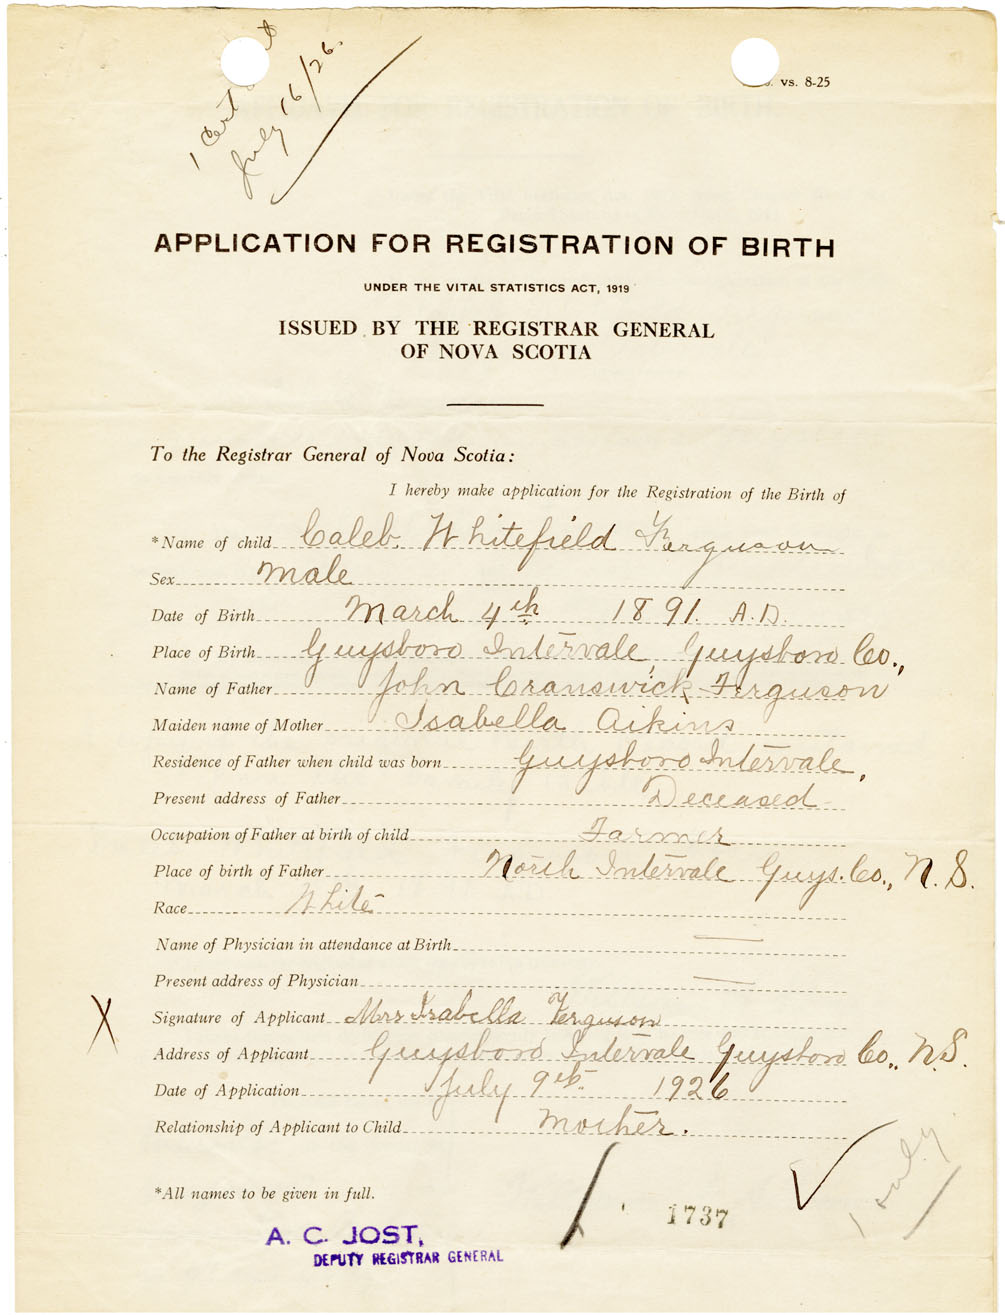 1 Cert
July 16/26.
vs. 8-25
APPLICATION FOR REGISTRATION OF BIRTH
UNDER THE VITAL STATISTICS ACT, 1919
ISSUED BY THE REGISTRAR GENERAL
OF NOVA SCOTIA
To the Registrar General of Nova Scotia:
I hereby make application for the Registration of the Birth of
*Name of child Caleb. Whitefield Ferguson
Sex Male
Date of Birth March 4th 1891. A.D.
Place of Birth Guysboro Intervale, Guysboro Co.,
Name of Father John Cranswick Ferguson
Maiden name of Mother Isabella Aikins
Residence of Father when child was born Guysboro Intervale,
Present address of Father Deceased
Occupation of Father at birth of child Farmer
Place of birth of Father North Intervale Guys. Co., N.S.
Race White
Name of Physician in attendance at Birth —
Present address of Physician —
X Signature of Applicant Mrs Isabella Ferguson
Address of Applicant Guysboro Intervale Guysboro Co., N.S.
Date of Application July 9th. 1926
Relationship of Applicant to Child Mother.
1 only
*All names to be given in full.
1737
A. C. JOST,
DEPUTY REGISTRAR GENERAL